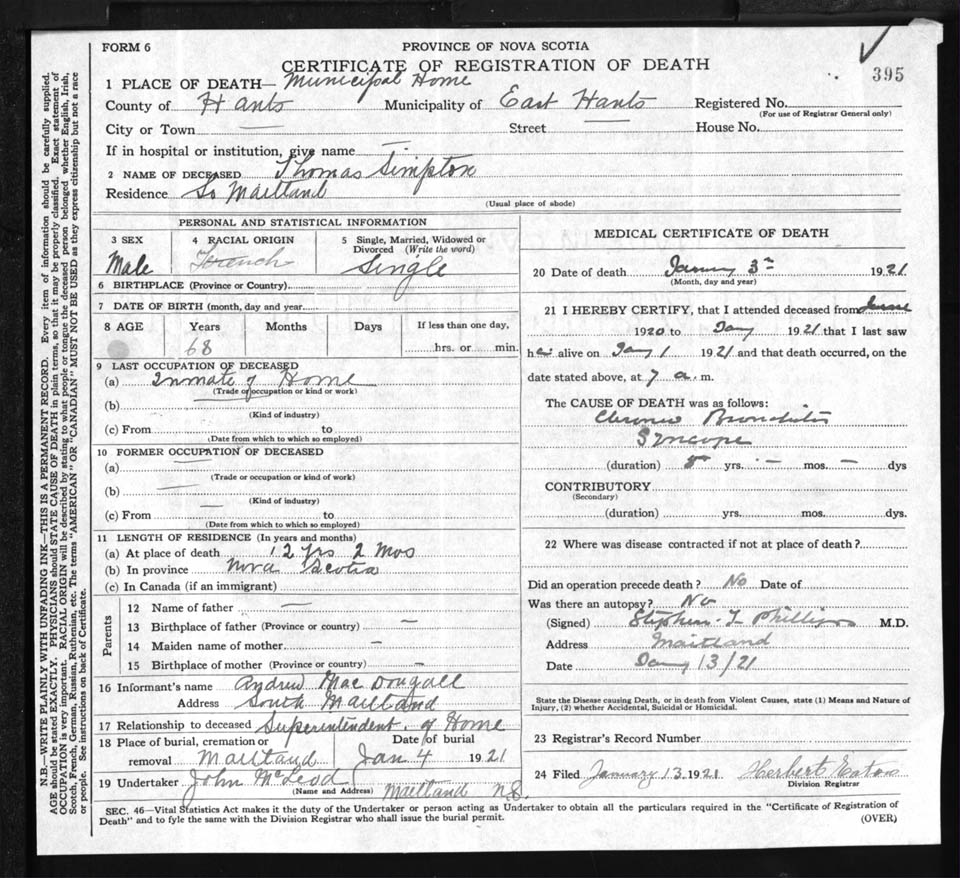 FORM 6
PROVINCE OF NOVA SCOTIA
CERTIFICATE OF REGISTRATION OF DEATH
395
1 PLACE OF DEATH— Municipal Home
County of Hants Municipality of East Hants Registered No.
(For use of Registrar General only)
City or Town — Street — House No.
If in hospital or institution, give name —
2 NAME OF DECEASED Thomas Simpton
Residence So Maitland
(Usual place of abode)
PERSONAL AND STATISTICAL INFORMATION
3 SEX Male
4 RACIAL ORIGIN French
5 Single, Married, Widowed or Divorced (Write the word) Single
6 BIRTHPLACE (Province or Country)
7 DATE OF BIRTH (month, day and year)
8 AGE Years Months Days If less than one day,
68 hrs. or min.
9 LAST OCCUPATION OF DECEASED
(a) Inmate of Home
(Trade or occupation or kind or work)
(b)
(Kind of industry)
(c) From to
(Date from which to which so employed)
10 FORMER OCCUPATION OF DECEASED
(a) —
(Trade or occupation or kind of work)
(b) —
(Kind of industry)
(c) From — to
(Date from which to which so employed)
11 LENGTH OF RESIDENCE (In years and months)
(a) At place of death 12 yrs 2 mos
(b) In province Nova Scotia
(c) In Canada (if an immigrant)
Parents
12 Name of father —
13 Birthplace of father (Province or country) —
14 Maiden name of mother —
15 Birthplace of mother (Province or country) —
16 Informant's name Andrew MacDougall
Address South Maitland
17 Relationship to deceased Superintendent of Home
18 Place of burial, cremation or Date of burial
removal Maitland Jan 4 1921
19 Undertaker John McLeod
(Name and Address) Maitland N.S.
MEDICAL CERTIFICATE OF DEATH
20 Date of death January 3rd 1921
(Month, day and year)
21 I HEREBY CERTIFY, that I attended deceased from
1920 to Jany 1921 that I last saw
h alive on Jany 1 1921 and that death occurred, on the
date stated above, at 7 a. m.
The CAUSE OF DEATH was as follows:
Chronic Bronchitis
Syncope
(duration) yrs. — mos. — dys
CONTRIBUTORY
(Secondary)
(duration) yrs. mos. dys.
22 Where was disease contracted if not at place of death?
Did an operation precede death? No Date of
Was there an autopsy? No
(Signed) Stephen L Phillips M.D.
Address Maitland
Date Jany 13/21
State the Disease causing Death, or in death from Violent Causes, state (1) Means and Nature of
Injury, (2) whether Accidental, Suicidal or Homicidal.
23 Registrar's Record Number
24 Filed January 13 1921 Herbert Eaton
Division Registrar
SEC. 46—Vital Statistics Act makes it the duty of the Undertaker or person acting as Undertaker to obtain all the particulars required in the "Certificate of Registration of
Death" and to fyle the same with the Division Registrar who shall issue the burial permit.
(OVER)
N.B.—WRITE PLAINLY WITH UNFADING INK—THIS IS A PERMANENT RECORD. Every item of information should be carefully supplied.
AGE should be stated EXACTLY. PHYSICIANS should STATE CAUSE OF DEATH in plain terms, so that it may be properly classified. Exact statement of
OCCUPATION is very important. RACIAL ORIGIN will be described by stating to what people or tongue the deceased person belonged whether English, Irish,
Scotch, French, German, Russian, Ruthenian, etc. The terms "AMERICAN" OR "CANADIAN" MUST NOT BE USED as they express citizenship but not a race
or people. See instructions on back of Certificate.